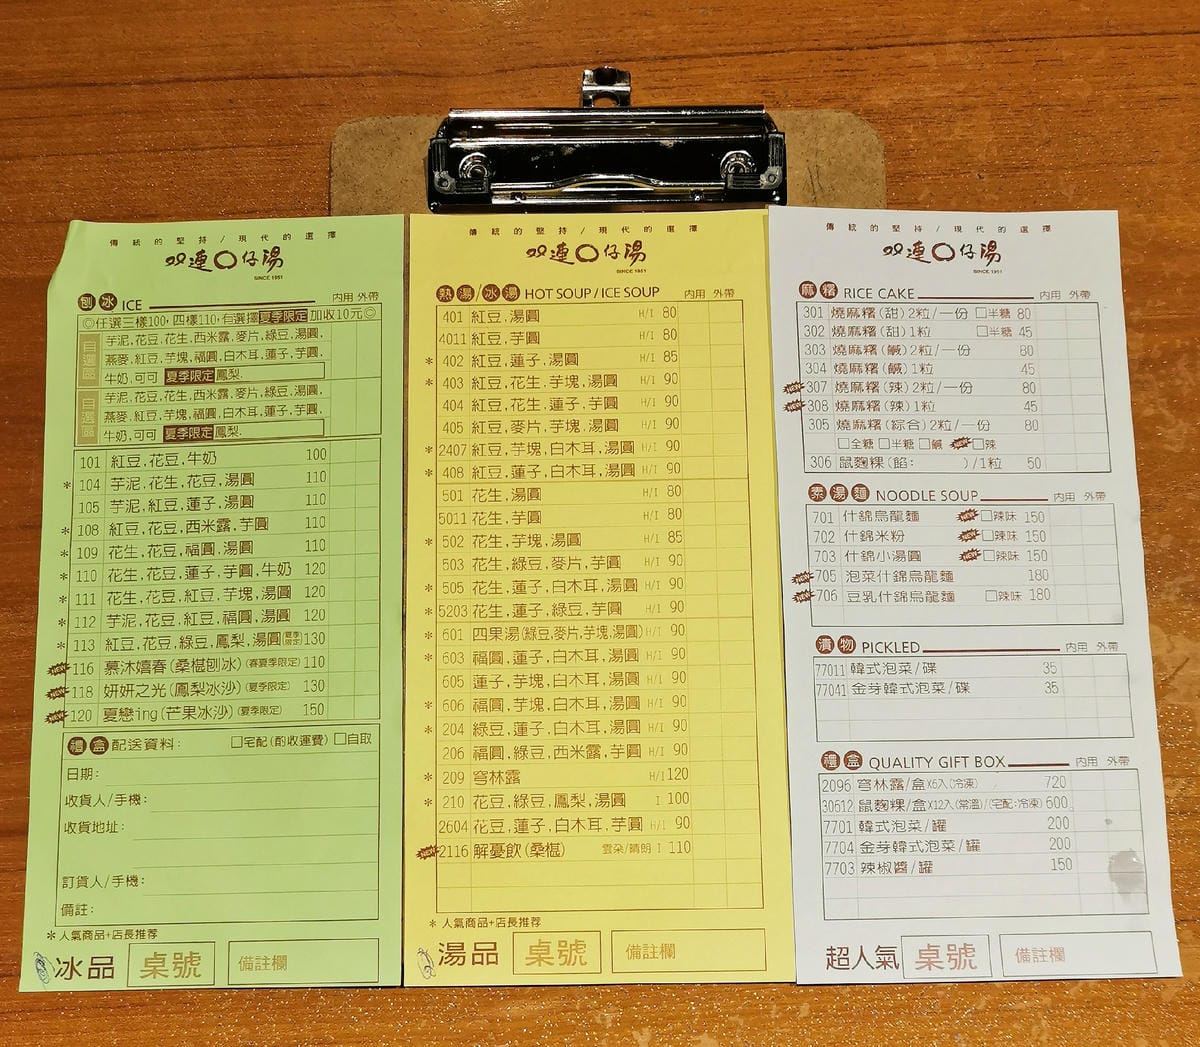 傳統的堅持/現代的選擇
双連○仔湯
SINCE 1951
刨冰 ICE 內用 外帶
◎任選三樣100，四樣110，有選擇夏季限定加收10元◎
自選區
芋泥,花豆,花生,西米露,麥片,綠豆,湯圓,
燕麥,紅豆,芋塊,福圓,白木耳,蓮子,芋圓,
牛奶,可可 夏季限定 鳳梨.
自選區
芋泥,花豆,花生,西米露,麥片,綠豆,湯圓,
燕麥,紅豆,芋塊,福圓,白木耳,蓮子,芋圓,
牛奶,可可 夏季限定 鳳梨.
101 紅豆,花豆,牛奶 100
*104 芋泥,花生,花豆,湯圓 110
105 芋泥,紅豆,蓮子,湯圓 110
*108 紅豆,花豆,西米露,芋圓 110
*109 花生,花豆,福圓,湯圓 110
*110 花生,花豆,蓮子,芋圓,牛奶 120
*111 花生,花豆,紅豆,芋塊,湯圓 120
*112 芋泥,花豆,紅豆,福圓,湯圓 120
*113 紅豆,花豆,綠豆,鳳梨,湯圓(夏季限定)130
116 慕沐嬉春(桑椹刨冰)(春夏季限定) 110
118 妍妍之光(鳳梨冰沙)(夏季限定) 130
120 夏戀ing(芒果冰沙)(夏季限定) 150
禮盒 配送資料: □宅配(酌收運費) □自取
日期:
收貨人/手機:
收貨地址:
訂貨人/手機:
備註:
*人氣商品+店長推荐
冰品 桌號 備註欄
傳統的堅持/現代的選擇
双連○仔湯
SINCE 1951
熱湯/冰湯 HOT SOUP/ICE SOUP 內用 外帶
401 紅豆,湯圓 H/I 80
4011 紅豆,芋圓 H/I 80
*402 紅豆,蓮子,湯圓 H/I 85
*403 紅豆,花生,芋塊,湯圓 H/I 90
404 紅豆,花生,蓮子,芋圓 H/I 90
405 紅豆,麥片,芋塊,湯圓 H/I 90
*2407 紅豆,芋塊,白木耳,湯圓 H/I 90
*408 紅豆,蓮子,白木耳,芋圓 H/I 90
501 花生,湯圓 H/I 80
5011 花生,芋圓 H/I 80
*502 花生,芋塊,湯圓 H/I 85
503 花生,綠豆,麥片,芋圓 H/I 90
*505 花生,蓮子,白木耳,湯圓 H/I 90
*5203 花生,蓮子,綠豆,芋圓 H/I 90
*601 四果湯(綠豆,麥片,芋塊,湯圓) H/I 90
*603 福圓,蓮子,白木耳,湯圓 H/I 90
605 蓮子,芋塊,白木耳,湯圓 H/I 90
*606 福圓,芋塊,白木耳,芋圓 H/I 90
*204 綠豆,蓮子,白木耳,芋圓 H/I 90
206 福圓,綠豆,西米露,芋圓 H/I 90
*209 穹林露 H/I 120
*210 花豆,綠豆,鳳梨,湯圓 I 100
2604 花豆,蓮子,白木耳,芋圓 H/I 90
2116 解憂飲(桑椹) 雲朵/晴朗 I 110
*人氣商品+店長推荐
湯品 桌號 備註欄
傳統的堅持/現代的選擇
双連○仔湯
SINCE 1951
麻糬 RICE CAKE 內用 外帶
301 燒麻糬(甜)2粒/一份 □半糖 80
302 燒麻糬(甜)1粒 □半糖 45
303 燒麻糬(鹹)2粒/一份 80
304 燒麻糬(鹹)1粒 45
307 燒麻糬(辣)2粒/一份 80
308 燒麻糬(辣)1粒 45
305 燒麻糬(綜合)2粒/一份 80
□全糖 □半糖 □鹹 □辣
306 鼠麴粿(餡: )/1粒 50
素湯麵 NOODLE SOUP 內用 外帶
701 什錦烏龍麵 □辣味 150
702 什錦米粉 □辣味 150
703 什錦小湯圓 □辣味 150
705 泡菜什錦烏龍麵 180
706 豆乳什錦烏龍麵 □辣味 180
漬物 PICKLED 內用 外帶
77011 韓式泡菜/碟 35
77041 金芽韓式泡菜/碟 35
禮盒 QUALITY GIFT BOX 內用 外帶
2096 穹林露/盒X6入(冷凍) 720
30612 鼠麴粿/盒X12入(常溫)/(宅配:冷凍) 600
7701 韓式泡菜/罐 200
7704 金芽韓式泡菜/罐 200
7703 辣椒醬/罐 150
超人氣 桌號 備註欄